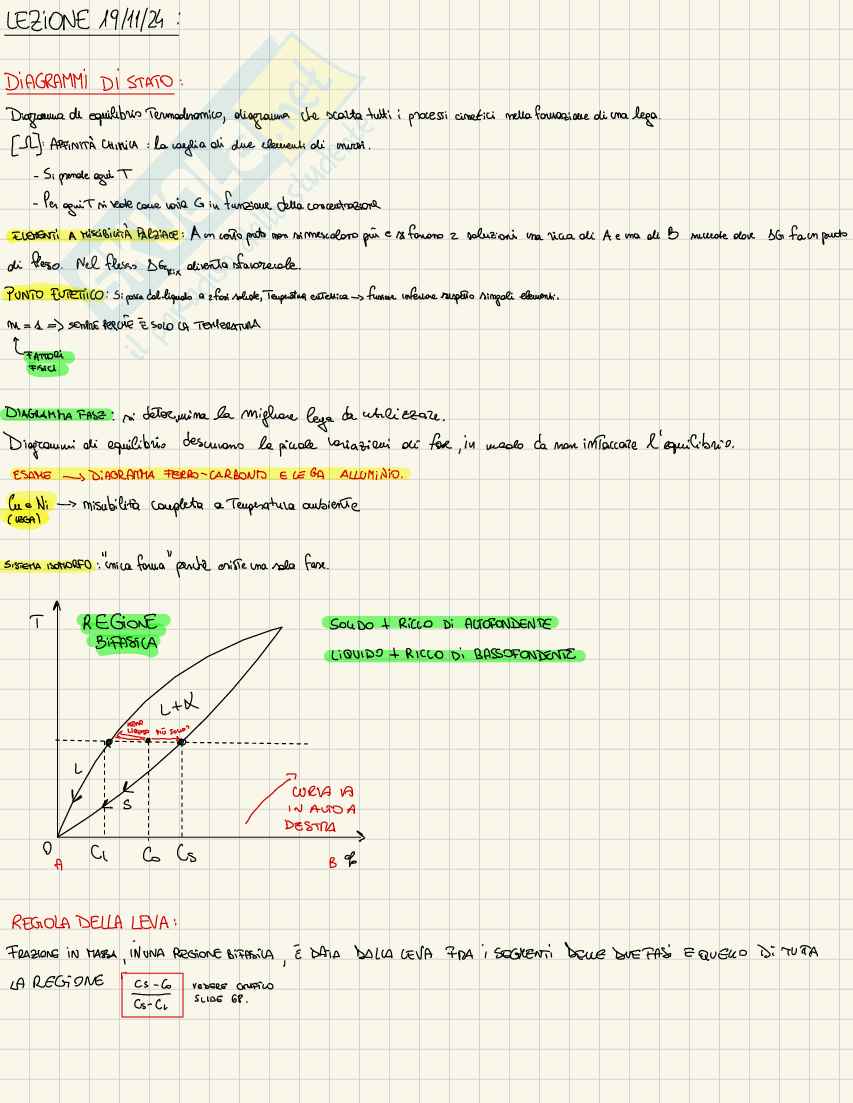 LEZIONE 19/11/24 :
DIAGRAMMI DI STATO :
Diagramma di equilibrio Termodinamico, diagramma che scarta tutti i processi cinetici nella formazione di una lega.
[Ω]: AFFINITÀ CHIMICA : la voglia di due elementi di unirsi.
- Si prende ogni T
- Per ogni T si vede come varia G in funzione della concentrazione
ELEMENTI A MISCIBILITÀ PARZIALE: A un certo punto non si mescolano più e si formano 2 soluzioni una ricca di A e una di B succede dove ΔG fa un punto
di flesso. Nel flesso ΔG MIX diventa sfavorevole.
PUNTO EUTETTICO: Si passa dal liquido a 2 fasi solide, Temperatura eutettica → fusione inferiore rispetto singoli elementi.
n = 1 => SEMPRE PERCHÈ È SOLO LA TEMPERATURA
FATTORI
FISICI
DIAGRAMMA FASE: si determina la migliore lega da utilizzare.
Diagrammi di equilibrio descrivono le piccole variazioni di fase, in modo da non intaccare l'equilibrio.
ESAME → DIAGRAMMA FERRO-CARBONIO E LEGA ALLUMINIO.
Cu e Ni → miscibilità completa a Temperatura ambiente
(LEGA)
SISTEMA ISOMORFO: "unica forma" perché esiste una sola fase.
T
REGIONE
BIFASICA
SOLIDO + RICCO DI ALTOFONDENTE
LIQUIDO + RICCO DI BASSOFONDENTE
L+α
MENO
LIQUIDO PIÙ SOLIDO
L
S
CURVA VA
IN ALTO A
DESTRA
0
A
CL
C0
CS
B %
REGOLA DELLA LEVA:
FRAZIONE IN MASSA, IN UNA REGIONE BIFASICA, È DATA DALLA LEVA FRA I SEGMENTI DELLE DUE FASI E QUELLO DI TUTTA
LA REGIONE
CS - C0
CS - CL
VEDERE GRAFICO
SLIDE 68.
SKUOLA.net
il paradiso dello studente